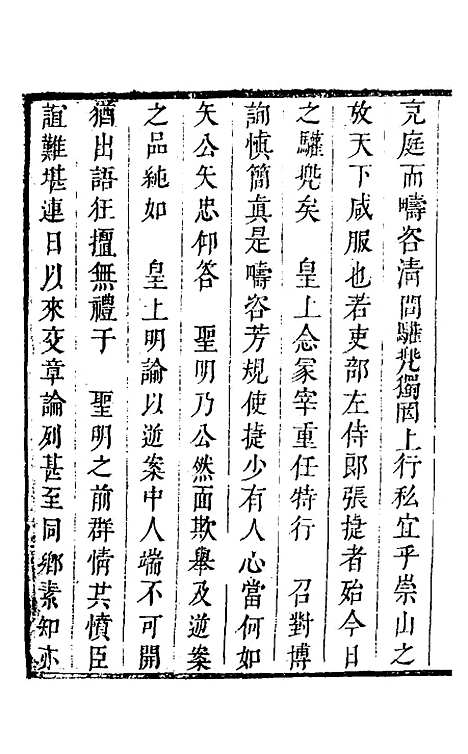 堯庭而疇咨淸問驩兠獨罔上行私宜乎崇山之
放天下咸服也若吏部左侍郎張捷者殆今日
之驩兠矣　皇上念冢宰重任特行　召對博
詢慎簡真是疇咨芳規使捷少有人心當何如
矢公矢忠仰答　聖明乃公然面欺舉及逆案
之品純如　皇上明諭以逆案中人端不可開
猶出語狂擅無禮于　聖明之前群情共憤臣
誼難堪連日以來交章論列甚至同鄉素知亦